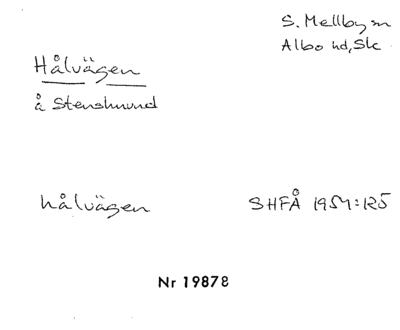 S. Mellby sn
Albo hd, Sk
Hålvägen
å Stenshuvud
hålvägen
SHFÅ 1954:125
Nr 19878